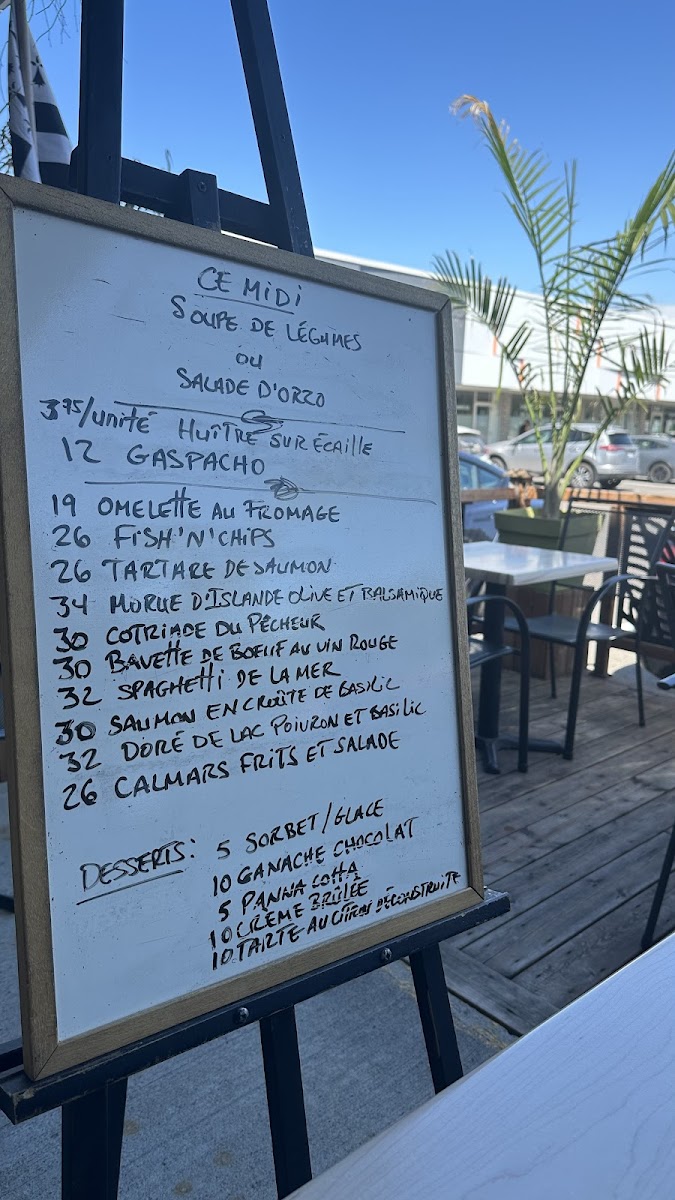 CE MIDI
SOUPE DE LÉGUMES
OU
SALADE D'ORZO
3,95/UNITÉ HUÎTRE SUR ÉCAILLE
12 GASPACHO
19 OMELETTE AU FROMAGE
26 FISH'N'CHIPS
26 TARTARE DE SAUMON
34 MORUE D'ISLANDE OLIVE ET BALSAMIQUE
30 COTRIADE DU PÊCHEUR
30 BAVETTE DE BOEUF AU VIN ROUGE
32 SPAGHETTI DE LA MER
30 SAUMON EN CROÛTE DE BASILIC
32 DORÉ DE LAC POIVRON ET BASILIC
26 CALMARS FRITS ET SALADE
DESSERTS: 5 SORBET/GLACE
10 GANACHE CHOCOLAT
5 PANNA COTTA
10 CRÈME BRÛLÉE
10 TARTE AU CITRON DÉCONSTRUITE